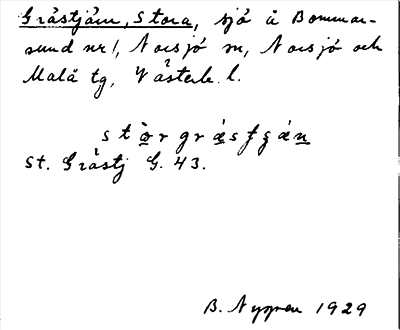 Gråstjärn, Stora, sjö å Bommar-
sund nr 1, Norsjö sn, Norsjö och
Malå tg, Västerb. l.
stòrgràsʃʒæn
St. Gråstj G. 43.
B. Nygren 1929